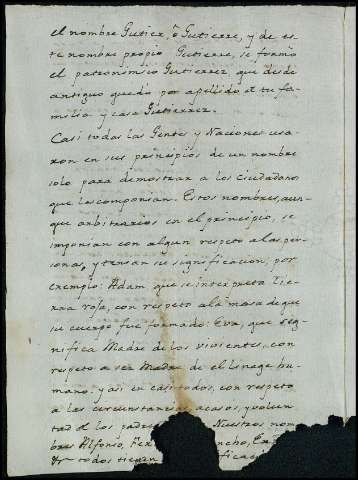 el nombre Gutier, ò Gutierre, y de es-
te nombre propio Gutierre, se formò
el patronimico Gutierrez, que desde
antiguo quedò por apellido á tu fa-
milia y casa Gutierrez.
Casi todas las Gentes y Naciones usa-
ron en sus principios de un nombre
solo para demostrar a los Ciudadanos
que las componian. Estos nombres, aun-
que arbitrarios en el principio, se
imponian con algun respeto a las per-
sonas, y tenian su significacion; por
exemplo: Adam que se interpreta Tie-
rra roja, con respeto ala masa de que
su cuerpo fue formado: Eva, que sig-
nifica Madre de los vivientes, con
respeto a ser Madre de el linage hu-
mano. y asi en casi todos, con respeto
a las circunstancias, acasos, y volun-
tad de los padres Nuestros nom-
bres Alfonso, Fer ncho,
todos tienen